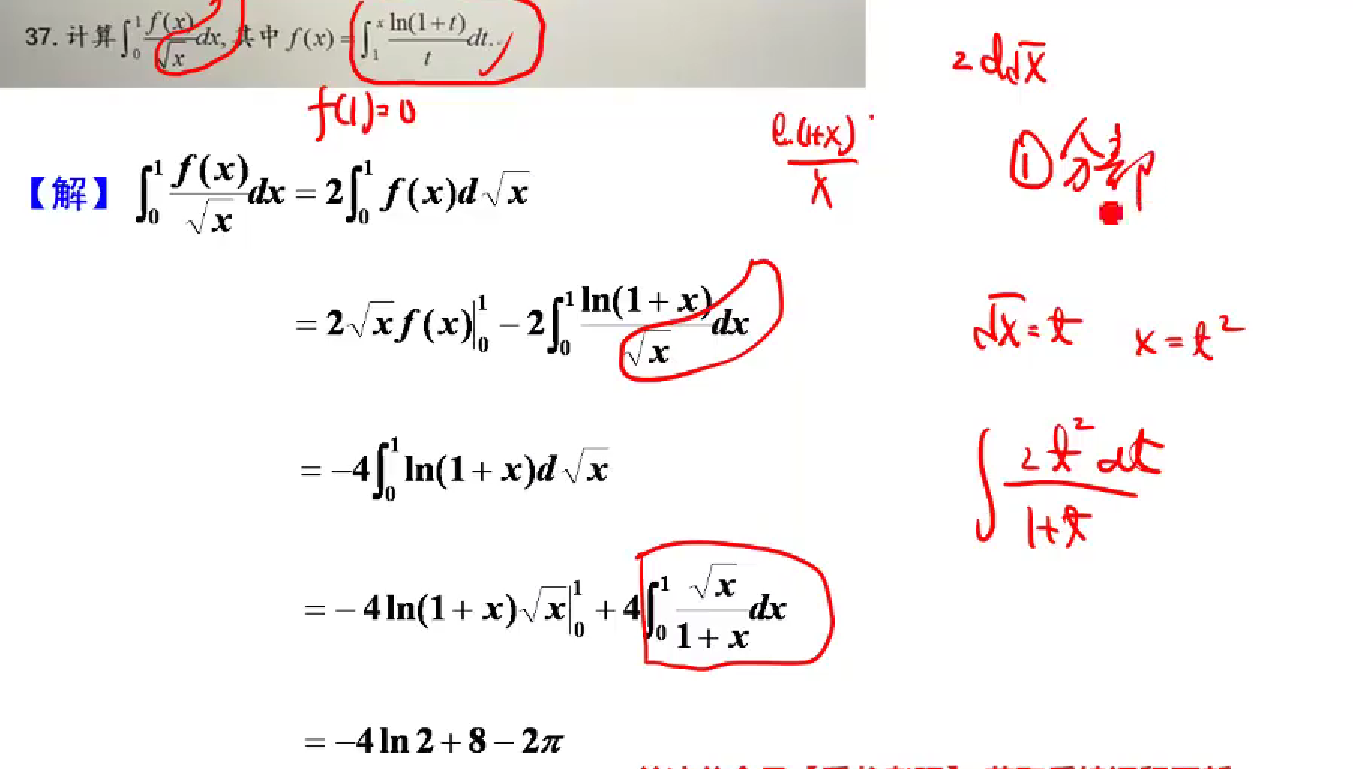 37. 计算∫₀¹ f(x)/√x dx, 其中 f(x)=∫₁ˣ ln(1+t)/t dt.
2 d√x
f(1)=0
ln(1+x)/x
① 分部
【解】∫₀¹ f(x)/√x dx = 2∫₀¹ f(x)d√x
= 2√x f(x)|₀¹ − 2∫₀¹ ln(1+x)/√x dx
√x=t x=t²
= −4∫₀¹ ln(1+x)d√x
∫ 2t²dt/(1+t)
= −4ln(1+x)√x|₀¹ + 4∫₀¹ √x/(1+x) dx
= −4ln2+8−2π